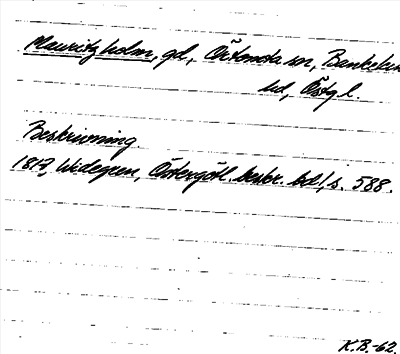 Mauritzholm, gd, Örtomta sn, Bankekin
hd, Östgl.
Beskrivning
1817, Widegren, Östergötl. beskr. bd 1, s. 588.
K.B.-62.